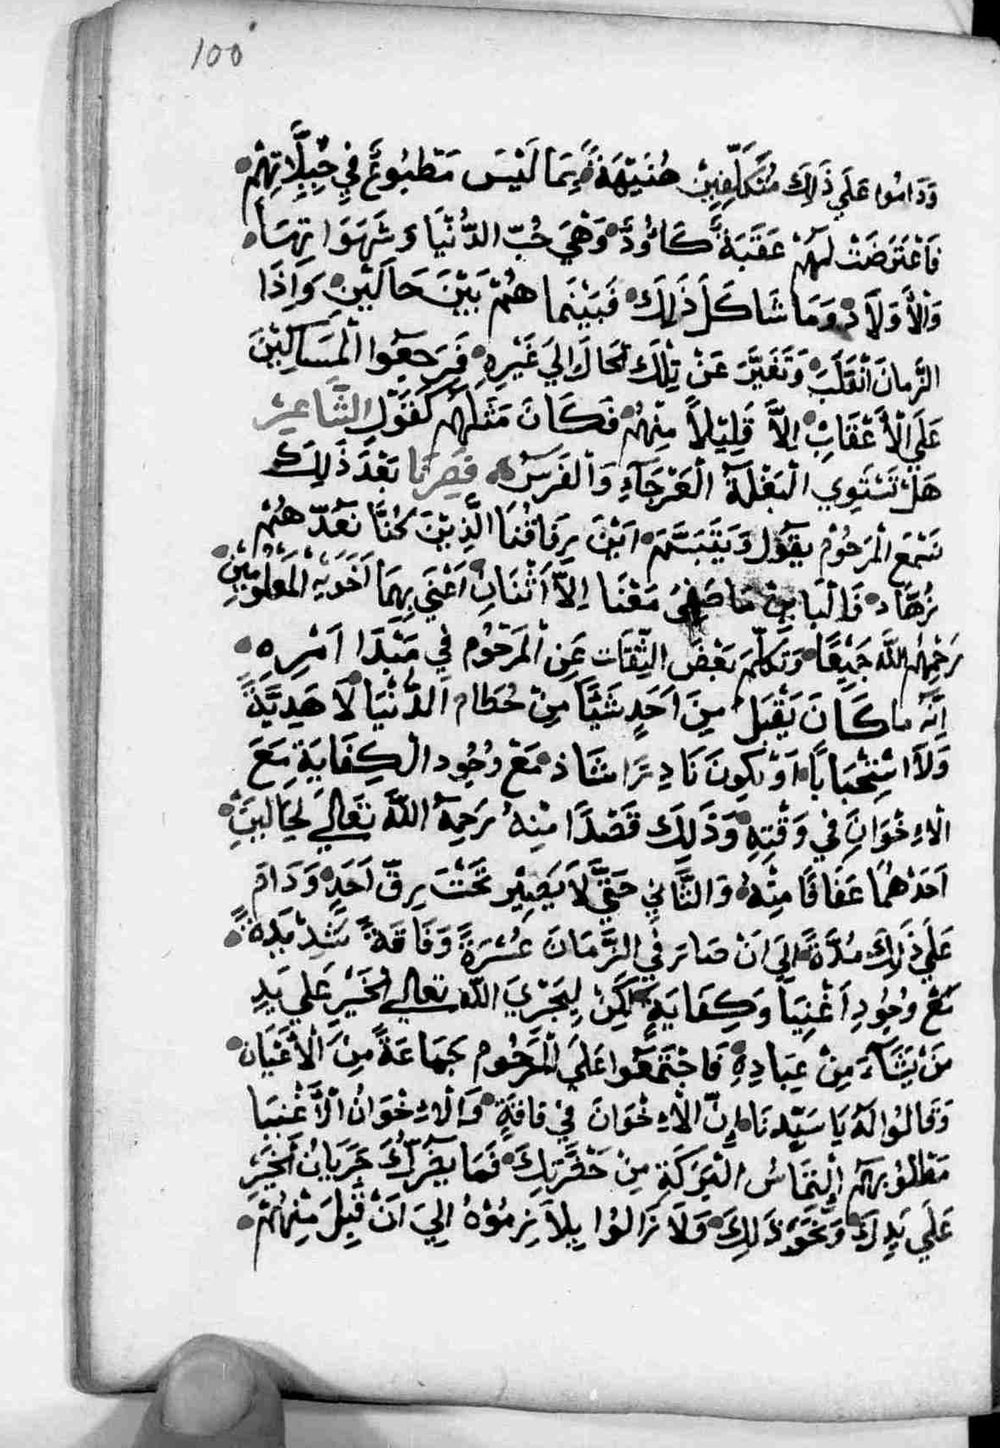 100
وَدَامُوا عَلَي ذَلِكَ مُتَكَلِّفِينْ هُنَيْهَةً بِمَا لَيْسَ مَطْبُوعٌ فِي جِبِلَّاتِهِمْ
فَاعْتَرَضَتْ لَهُمْ عَقَبَةٌ كَاؤُدٌ وَهْيَ حُبّ الدُّنْيَا وَشَهَوَاتِهَا
وَالْأَوْلَادْ وَمَا شَاكَلَ ذَلِكَ فَبَيْنَمَا هُمْ بَيْنَ حَالَيْنِ وَاِذَا
الزَّمَانَ انْقَلَبَ وَتَغَيَّرَ عَنْ تِلْكَ الحَال اِلَي غَيْرِهِ فَرَجعُوا الْمَسَاكِيْنَ
عَلَي الْأَعْقَابِ اِلَّا قَلِيْلاً مِنْهُمْ فَكَانَ مَثَلهُمْ كَقَوْلِ الشَّاعِرْ
هَلْ تَسْتَوِي الْبَغْلَةُ الْعَرْجَآءِ وَالْفَرَسُ فَصِرْنَا بَعْدَ ذَلِكَ
نَسْمَع الْمَرحُوْمْ يقُوْل وَيَتَبَسَّمَ اَيْنَ رِفَاقْنَا الَّذِيْنَ كُنَّا نَعُدّ هُمْ
زُهَّاد وَالْبَا مَا مَعْنَا اِلاَّ اثْنَانِ اَعْنِي بِهِمَا اَخَوَيْهِ الْمَعْلُوْمَيْنِ
رَحِمْهُمُ اللّٰه جَمِيْعًا وَتَكَلّمَ بَعْضُ الثِّقَات عَنِ الْمَرْحُوْم فِي مَبْدَا اَمْرِه
اِنَّهُ مَا كَانَ يَقْبَلُ مِنَ اَحَدٍ شَيْئًا مِنْ حُطَامِ الدُّنْيَا لاَ هَدِيَّةً
وَلاَ اسْتِحْبَابًا اَوْ يَكُونَ نَادِرًا شَاذ مَعْ وُجُود الْكِفَايَةِ مَعَ
الْاءِخْوَانِ فِي وَقْتِهِ وَذَلِكَ قَصْدًا مِنْهُ رَحِمَهُ اللّٰه تَعَالي لِحَالَيْنِ
اَحَدْهُمَا عَفَافًا مِنْهُ وَالثَّانِي حَتَّي لاَ يَصِيْر تَحْتَ رِقّ اَحَدٍ وَدَامَ
عَلَي ذَلِكَ مُدَّةً اِلَي اَنْ صَارَ فِي الزَّمَانَ عُسْرَةً وَفَاقَةً شَدِيْدَةً
مَعْ وُجُودِ اَغْنِيَا وَكِفَايَةٍ لَكِنْ لِيَجْرِيَ اللّٰه تعالي الْخَيْر عَلَي يَدِ
مَنْ يَشَآءُ مِنْ عِبَادِهِ فَاجْتَمَعُوا عَلَي الْمَرْحُوم جَمَاعَةً مِنَ الْأَعْيَان
وَقَالُوا لَهُ يَا سَيّدنَا اِنّ الْاءِخْوَانَ فِيْ فَاقَةٍ وَالْاءِخْوَانُ الْأَغْنِيَا
مَطْلُوْبهُم اِلْتِمَاسُ الْبَرَكَةِ مِنْ حَضْرَتِكَ فَمَا يضُرُّكَ جَرَيَانُ الْخَيْر
عَلَي يَدِكَ وَنَحْوَ ذَلِكَ وَلاَ زَالُوْا يِلاَزِمُوْهُ اِلَي اَنْ قَبِلَ مِنْهُمْ